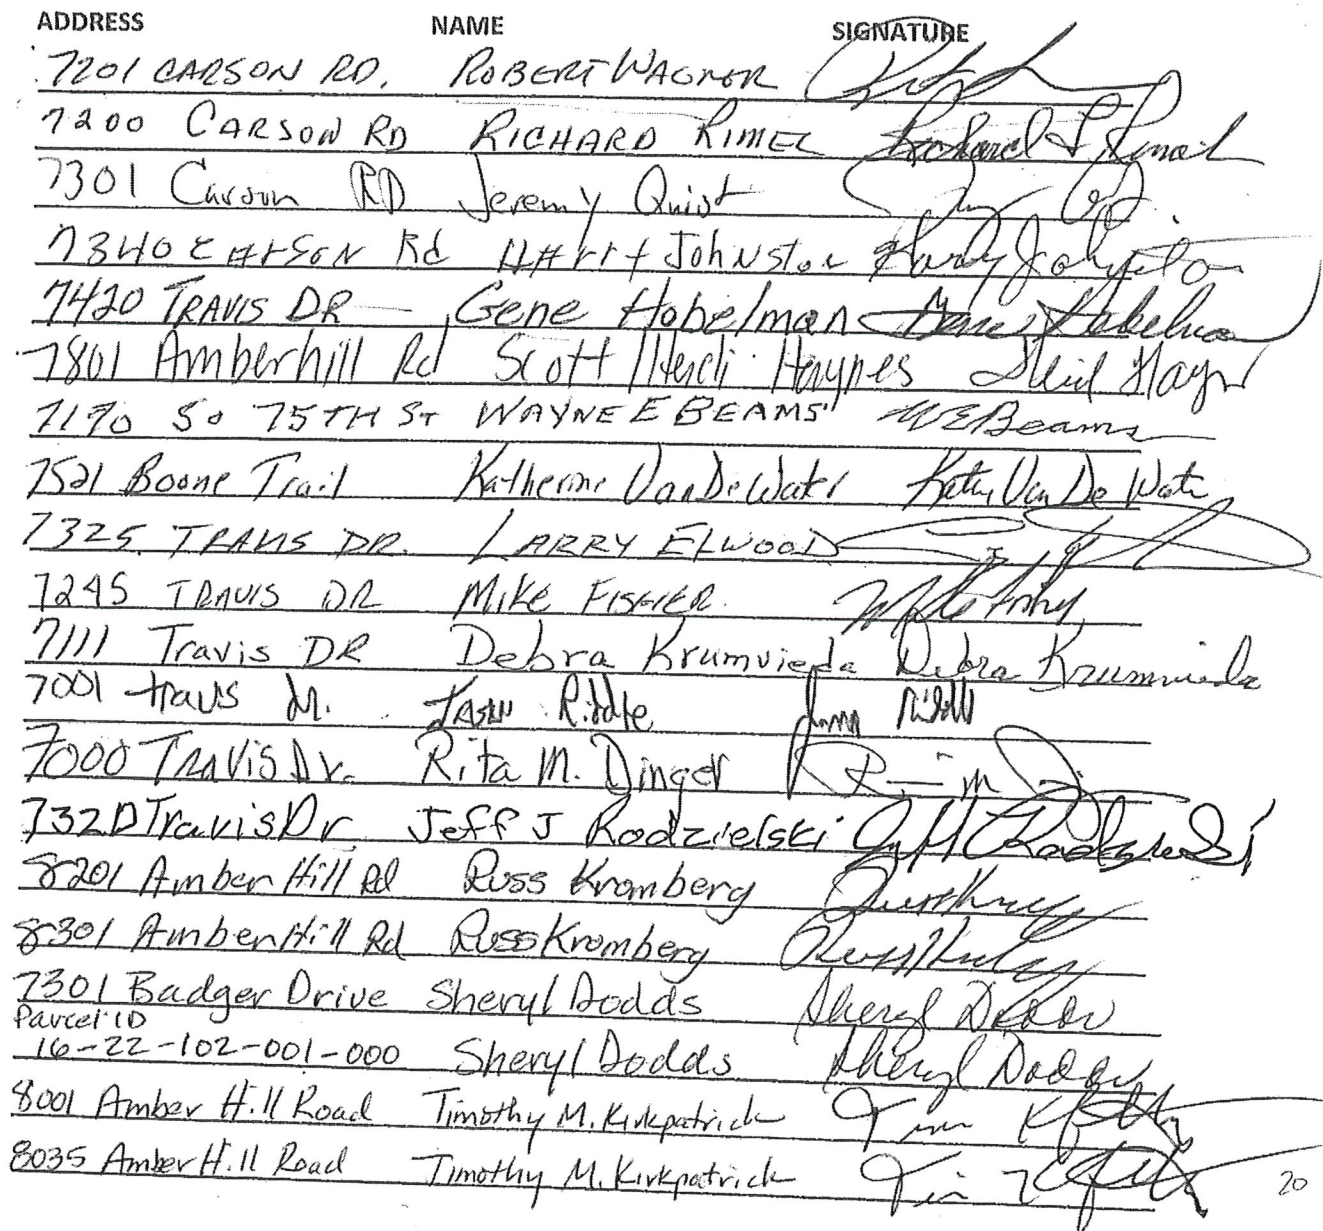 ADDRESS NAME SIGNATURE
7201 CARSON RD. ROBERT WAGNER
7200 CARSON RD RICHARD RIMEL Richard L Rimel
7301 Carson RD Jeremy Quist
7340 CARSON Rd HArry Johnston Harry Johnston
7420 TRAVIS DR Gene Hobelman Gene Hobelman
7801 Amberhill Rd Scott / Heidi Haynes Heidi Haynes
7170 So 75TH ST WAYNE E BEAMS WE Beams
7521 Boone Trail Katherine VanDeWater Kathy Van De Water
7325 TRAVIS DR. LARRY ELWOOD
7245 TRAVIS DR MIKE FISHER
7111 Travis DR Debra Krumvieda Debra Krumvieda
7001 travis Dr. Riddle
7000 TRAVis Dr. Rita M. Dinger
7320 Travis Dr Jeff J Rodzielski
8201 Amber Hill Rd Russ Kromberg
8301 Amber Hill Rd Russ Kromberg
7301 Badger Drive Sheryl Dodds Sheryl Dodds
Parcel ID
16-22-102-001-000 Sheryl Dodds Sheryl Dodds
8001 Amber Hill Road Timothy M. Kirkpatrick Tim
8035 Amber Hill Road Timothy M. Kirkpatrick Tim
20